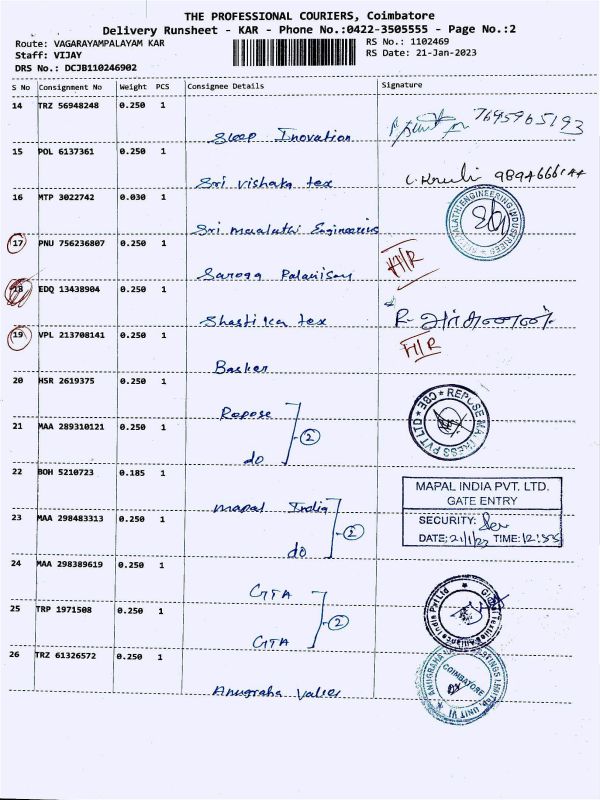 THE PROFESSIONAL COURIERS, Coimbatore
Delivery Runsheet - KAR - Phone No.:0422-3505555 - Page No.:2
Route: VAGARAYAMPALAYAM KAR
RS No.: 1102469
Staff: VIJAY
RS Date: 21-Jan-2023
DRS No.: DCJB110246902
S No Consignment No Weight PCS Consignee Details Signature
14 TRZ 56948248 0.250 1
Sleep Inovation 7695965193
15 POL 6137361 0.250 1
Sri vishaka tex 9894666144
16 MTP 3022742 0.030 1
Sri maaluthi Engineering
17 PNU 756236807 0.250 1
Palanisamy H/R
18 EDQ 13438904 0.250 1
Shastika tex R.
19 VPL 213708141 0.250 1
Basker H/R
20 HSR 2619375 0.250 1
Repose
21 MAA 289310121 0.250 1
do 2
REPOSE MATTRESS PVT LTD CBE
22 BOH 5210723 0.185 1
mapal India
23 MAA 298483313 0.250 1
do 2
MAPAL INDIA PVT. LTD.
GATE ENTRY
SECURITY:
DATE: 21/1/23 TIME: 12:55
24 MAA 298389619 0.250 1
GTA
25 TRP 1971508 0.250 1
GTA 2
26 TRZ 61326572 0.250 1
Anugraha Valve
COIMBATORE